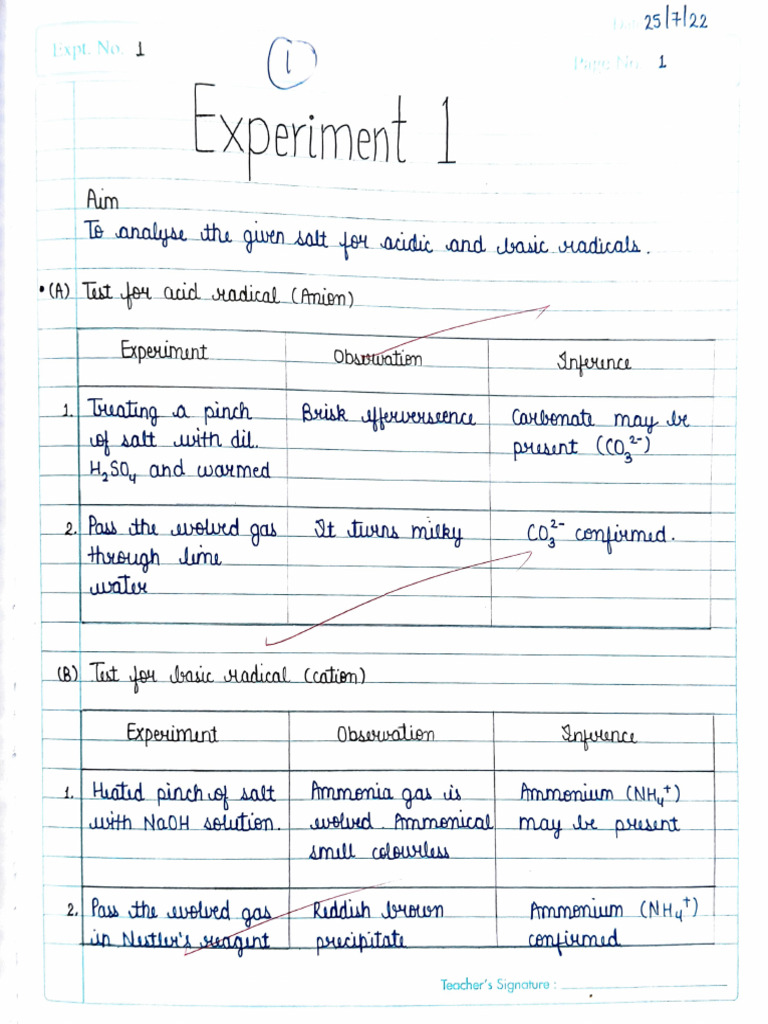 Date 25/7/22
Expt. No. 1
1
Page No. 1
Experiment 1
Aim
To analyse the given salt for acidic and basic radicals.
•(A) Test for acid radical (Anion)
Experiment Observation Inference
1. Treating a pinch of salt with dil. H₂SO₄ and warmed
Brisk efferverscence
Carbonate may be present (CO₃²⁻)
2. Pass the evolved gas through lime water
It turns milky
CO₃²⁻ confirmed.
(B) Test for basic radical (cation)
Experiment Observation Inference
1. Heated pinch of salt with NaOH solution.
Ammonia gas is evolved. Ammonical smell colourless
Ammonium (NH₄⁺) may be present
2. Pass the evolved gas in Nestler's reagent
Reddish brown precipitate
Ammonium (NH₄⁺) confirmed
Teacher's Signature :